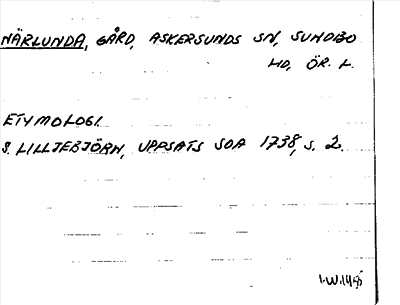 NÄRLUNDA, GÅRD, ASKERSUNDS SN, SUNDBO
HD, ÖR. L.
ETYMOLOGI.
S. LILLJEBJÖRN, UPPSATS SOA 1738, S. 2.